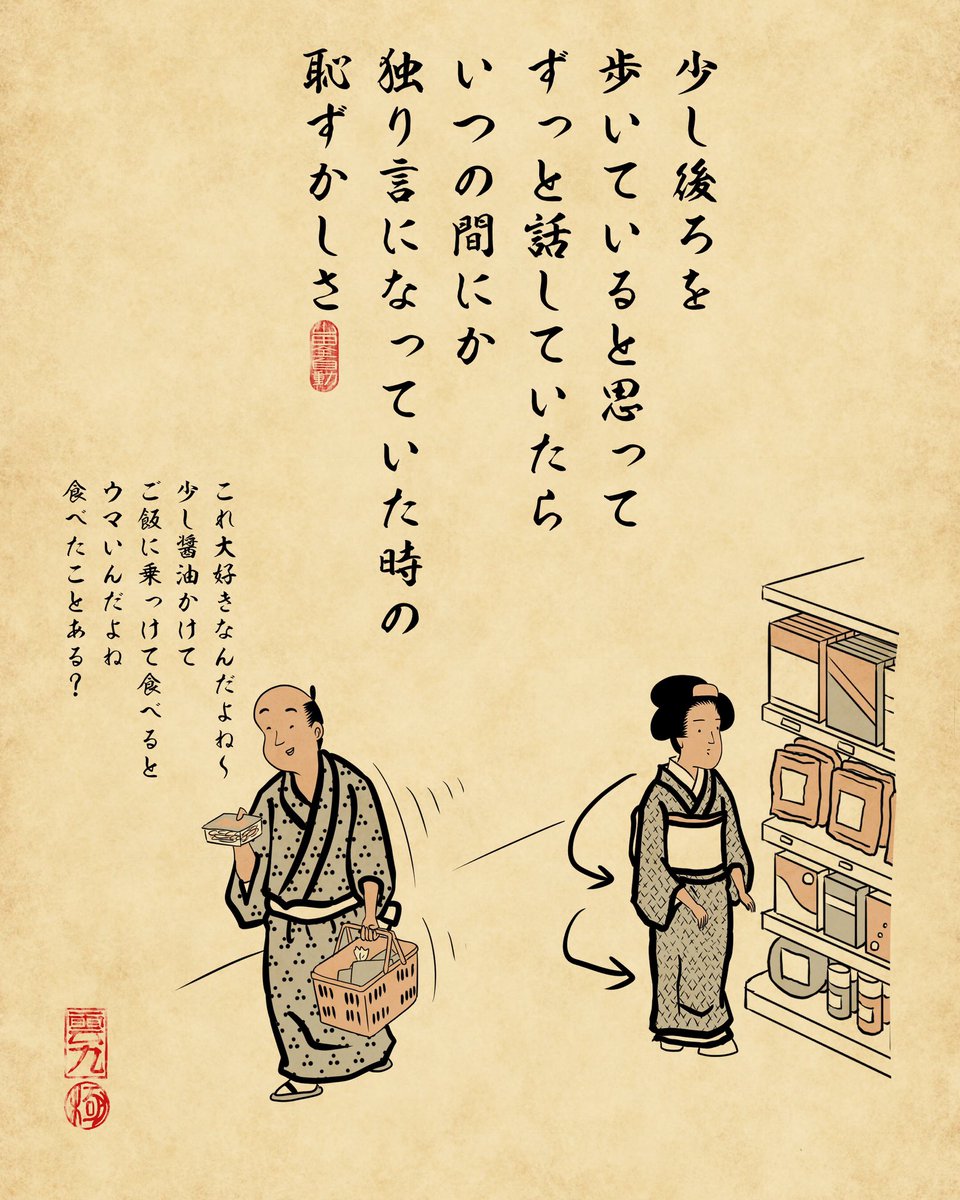 少し後ろを
歩いていると思って
ずっと話していたら
いつの間にか
独り言になっていた時の
恥ずかしさ
これ大好きなんだよね～
少し醤油かけて
ご飯に乗っけて食べると
ウマいんだよね
食べたことある?